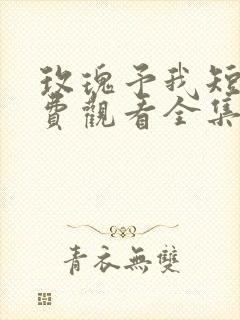 玫瑰予我短
費觀看全集
青衣無雙